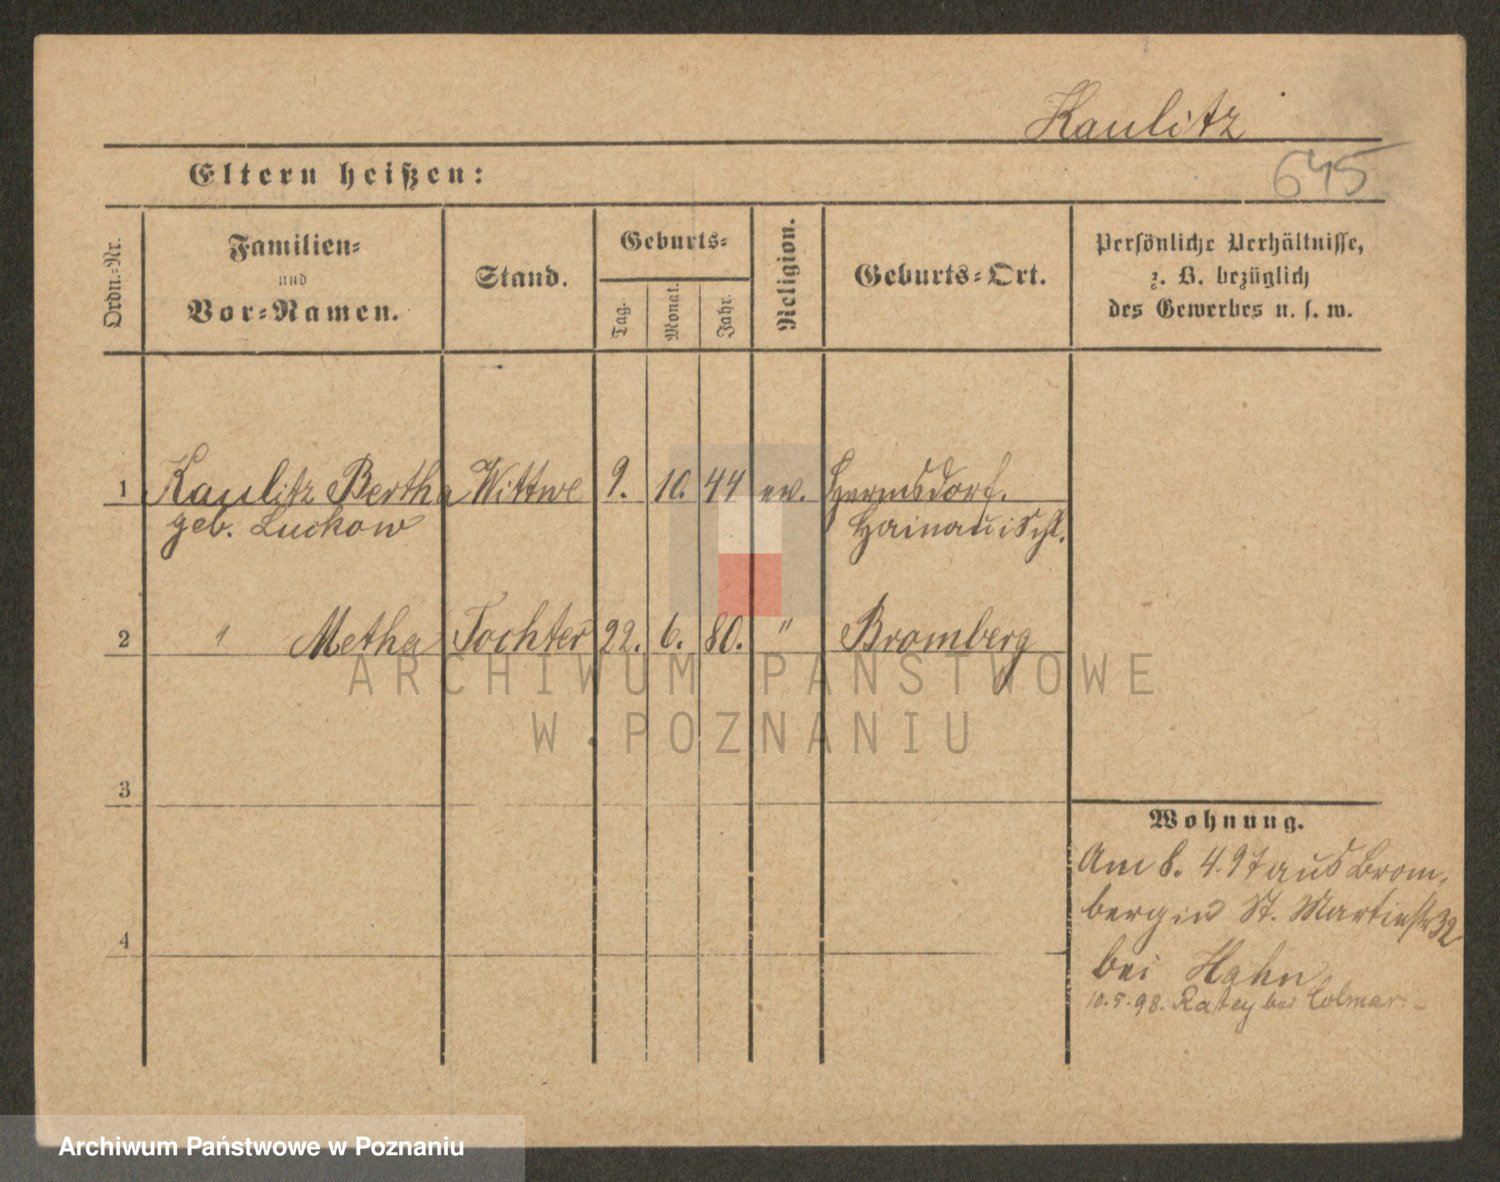 Kaulitz
645
Eltern heißen:
Ordn.-Nr.
Familien-
und
Vor-Namen.
Stand.
Geburts-
Tag.
Monat.
Jahr.
Religion.
Geburts-Ort.
Persönliche Verhältnisse,
z. B. bezüglich
des Gewerbes u. s. w.
1 Kaulitz Bertha Wittwe 9. 10. 44 ev. Hermsdorf.
geb. Luckow Hainau i Schl.
2 " Metha Tochter 22. 6. 80. " Bromberg
3
4
Wohnung.
Am 8. 4. 97 aus Brom-
berg in St. Martinstr 32
bei Hahn
10.5.98. Ratey bei Colmar
ARCHIWUM PAŃSTWOWE
W POZNANIU
Archiwum Państwowe w Poznaniu